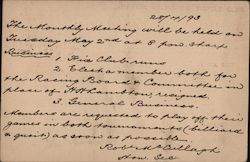 25/4/93
The Monthly Meeting will be held on
Tuesday May 2nd at 8 p.m. sharp
Business
1. Fix Club runs
2. Elect a member both for
the Racing Board & Committee in
place of resigned.
3. General Business.
Members are requested to play off their
games in both tournaments (billiard
& quoit) as soon as possible.
Robt
Hon. Sec